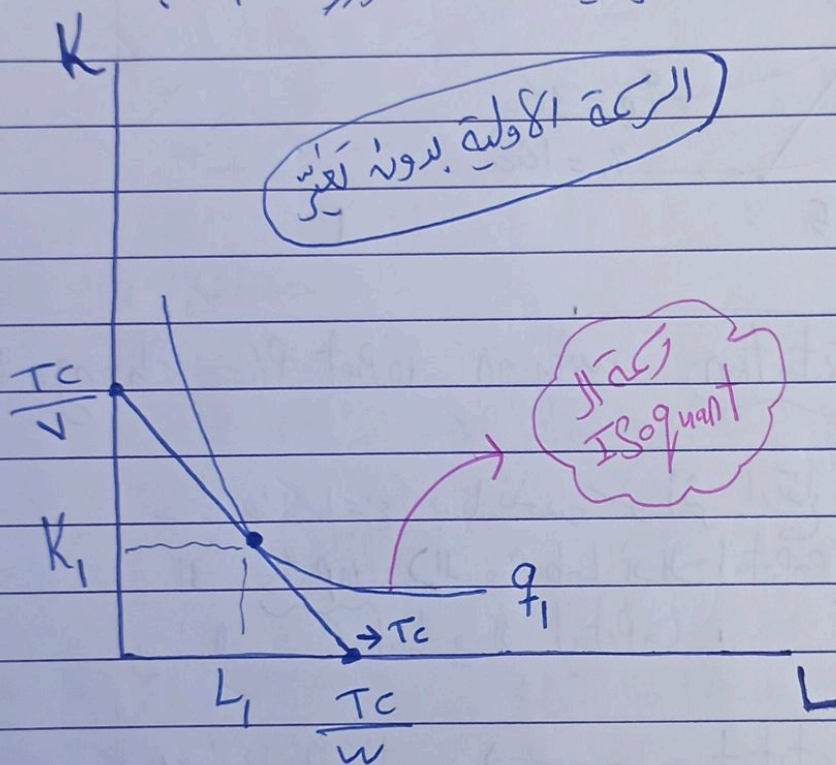 K
الرسمة الاولية بدون تغيّر
TC
V
رسمة ال
ISoquant
K1
q1
→ TC
L1
TC
W
L